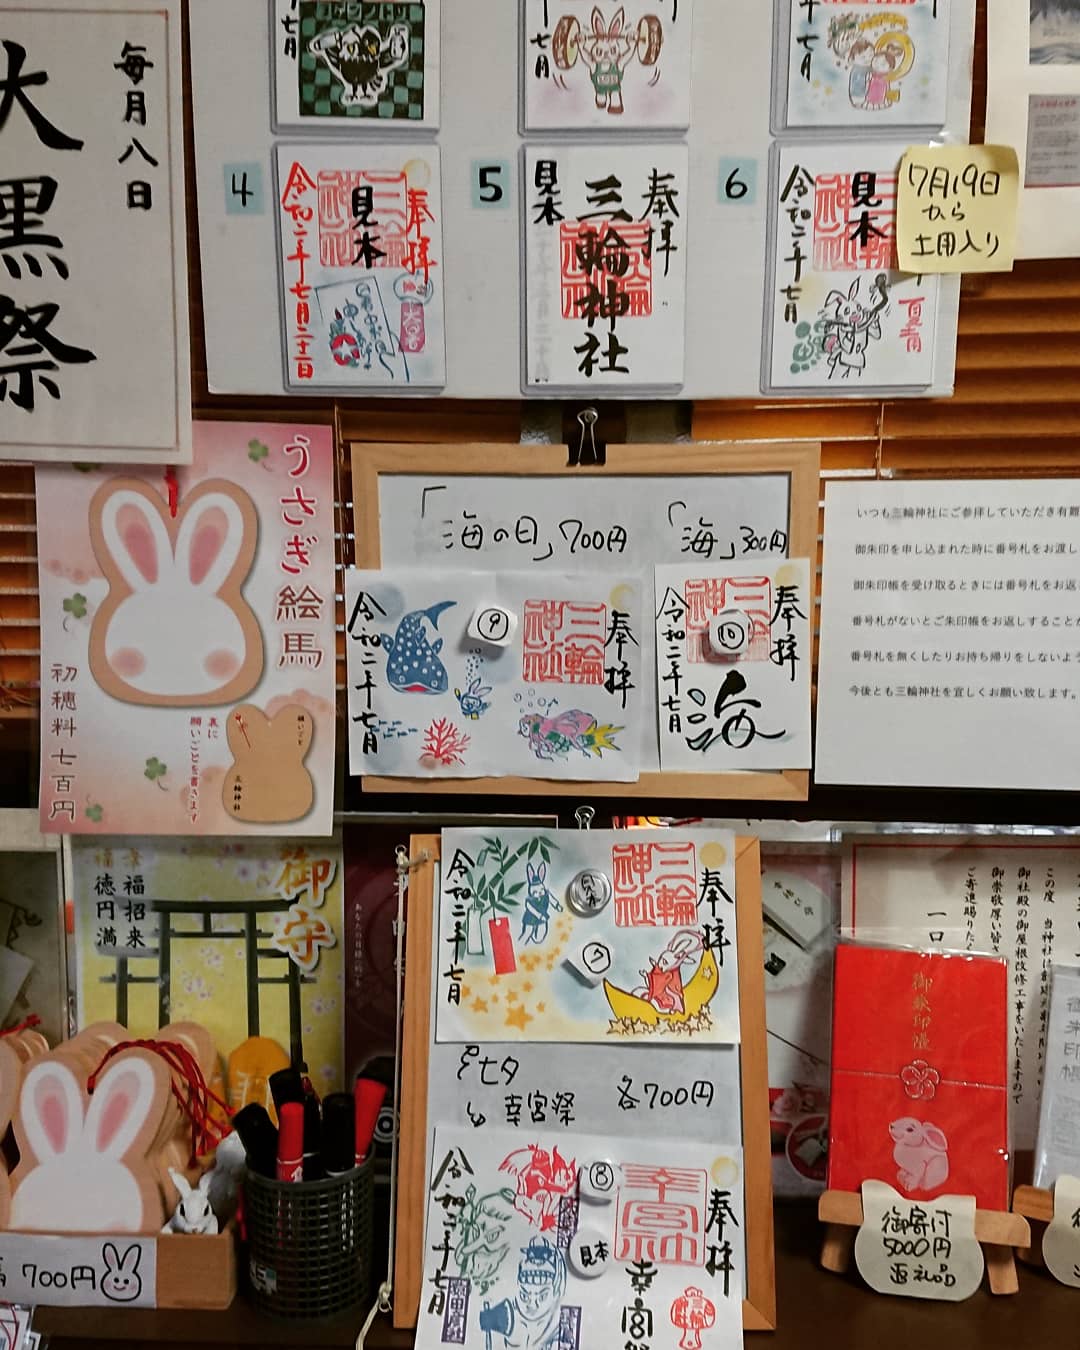 毎月八日
大黒祭
七月
七月
年七月
4
令和二年七月二十二日
三輪神社
見本
奉拝
5
見本
三輪神社
奉拝
6
令和二年七月
三輪神社
見本
7月19日
から
土用入り
うさぎ絵馬
初穂料七百円
裏に
願いごとを書きます
願いごと
三輪神社
「海の日」700円
「海」300円
令和二年七月
⑨
三輪神社
奉拝
令和二年七月
⑩
三輪神社
奉拝
海
いつも三輪神社にご参拝していただき有難
御朱印を申し込まれた時に番号札をお渡し
御朱印帳を受け取るときには番号札をお返
番号札がないとご朱印帳をお返しすることが
番号札を無くしたりお持ち帰りをしないよう
今後とも三輪神社を宜しくお願い致します。
御守
幸福招来
福徳円満
令和二年七月
⑦
三輪神社
奉拝
七夕
幸宮祭
各700円
令和二年七月
⑧
見本
幸宮神社
奉拝
幸宮祭
この度　当神社は
御社殿の御屋根改修工事をいたしますので
御崇敬厚い皆さ
ご寄進賜りた
一口
御朱印帳
御朱印帳
御寄付
5000円
返礼品
700円